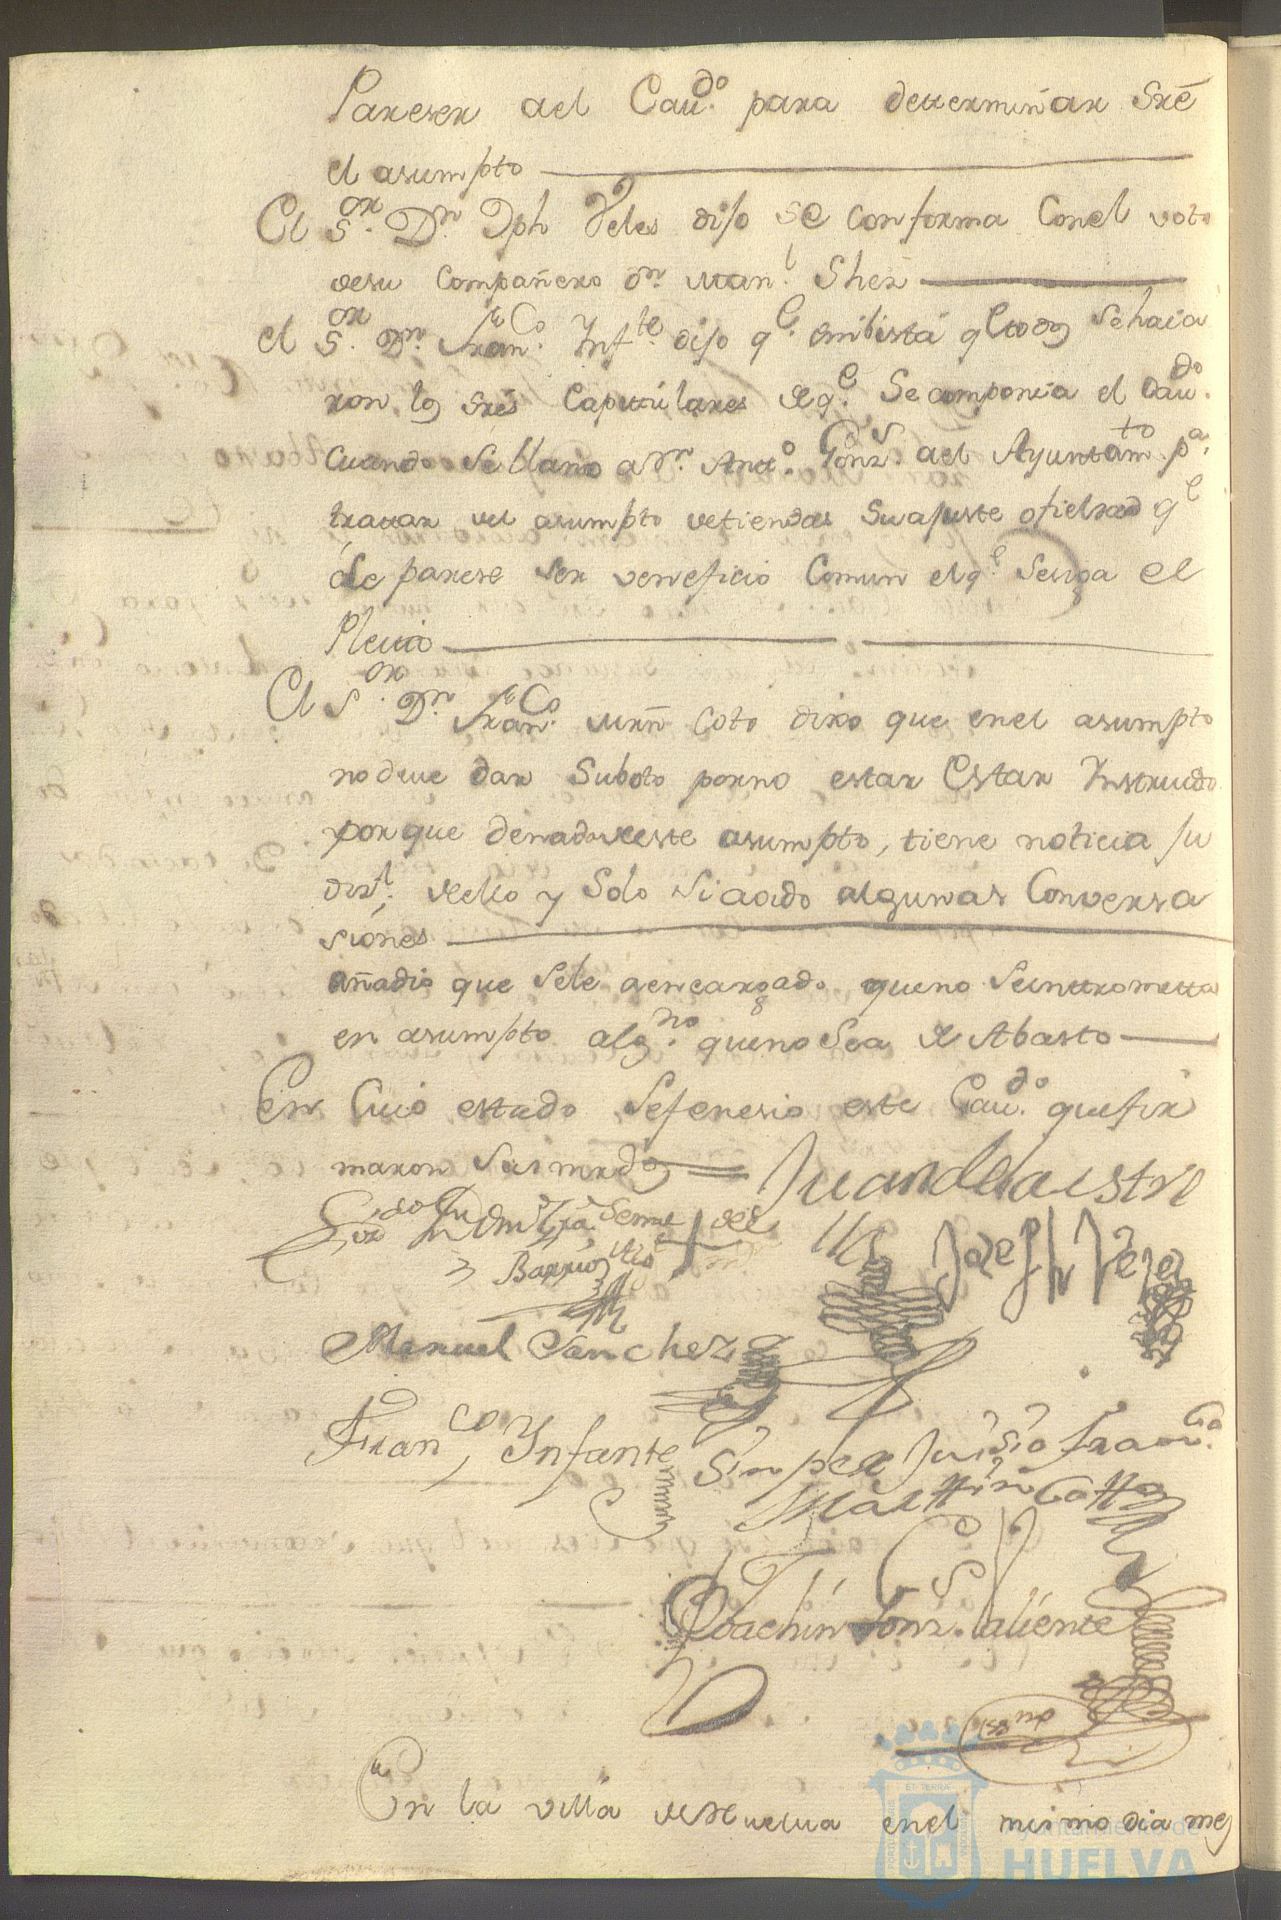 Pareser del Cau.do para determinar Sre
el asumpto
El S.or D.n Jph Veles dijo se conforma Conel voto
desu Compañero d.n Man.l Shez
el S.or D.n Fran.co Inf.te dijo q.e enbista q.e todos Sehaia
ron los sres Capitulares de q.e Se componia el Cau.do
Cuando se llamo a D.n Ant.o Gonz.s del Ayuntam.to p.a
tratar del asumpto detiendas Suajuste ofieldad q.e
de parese ser veneficio Comun elq.e Sesiga el
Pleito
El S.or D.n Fran.co Mrn Coto dixo que enel asumpto
no deue dar Suboto porno estar Estar Instruido
porque denadadeeste asumpto, tiene noticia su
dello y Solo si aoido algunas Conversa
siones
añadio que Sele aencargado queno Seintrometta
en asumpto alg.no queno Sea de Abasto
En Cuio estado Sefenesio este Cau.do quefir
maron Sus mrds = Juan de la
Barrios
Joseph Velez
Manuel Sanchez
Fran.co Infante
Sin perJuisio Fran.co
Martin Cotto
Joachin Gonz. Valiente
ess.no
En la villa de Huelua enel mismo dia mes
Ayuntamiento de
HUELVA